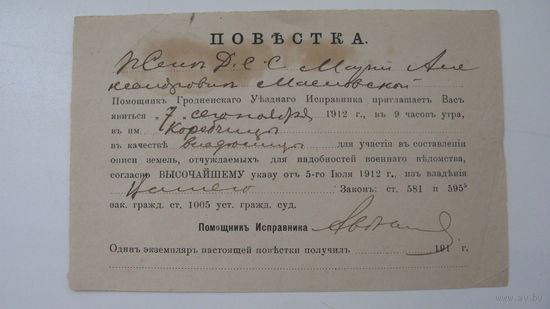 ПОВѢСТКА.
Женѣ Д.С.С. Маріи Але
ксандровнѣ Масловской
Помощникъ Гродненскаго Уѣзднаго Исправника приглашаетъ Васъ
явиться „7" сентября 1912 г., въ 9 часовъ утра,
въ им. Коробчицы
въ качествѣ владѣлицы для участія въ составленіи
описи земель, отчуждаемыхъ для надобностей военнаго вѣдомства,
согласно ВЫСОЧАЙШЕМУ указу отъ 5-го Іюля 1912 г., изъ владѣнія
Вашего Законъ: ст. 581 и 595⁵
зак. гражд. ст. 1005 уст. гражд. суд.
Помощникъ Исправника
Одинъ экземпляръ настоящей повѣстки получилъ 191 г.
www.ay.by